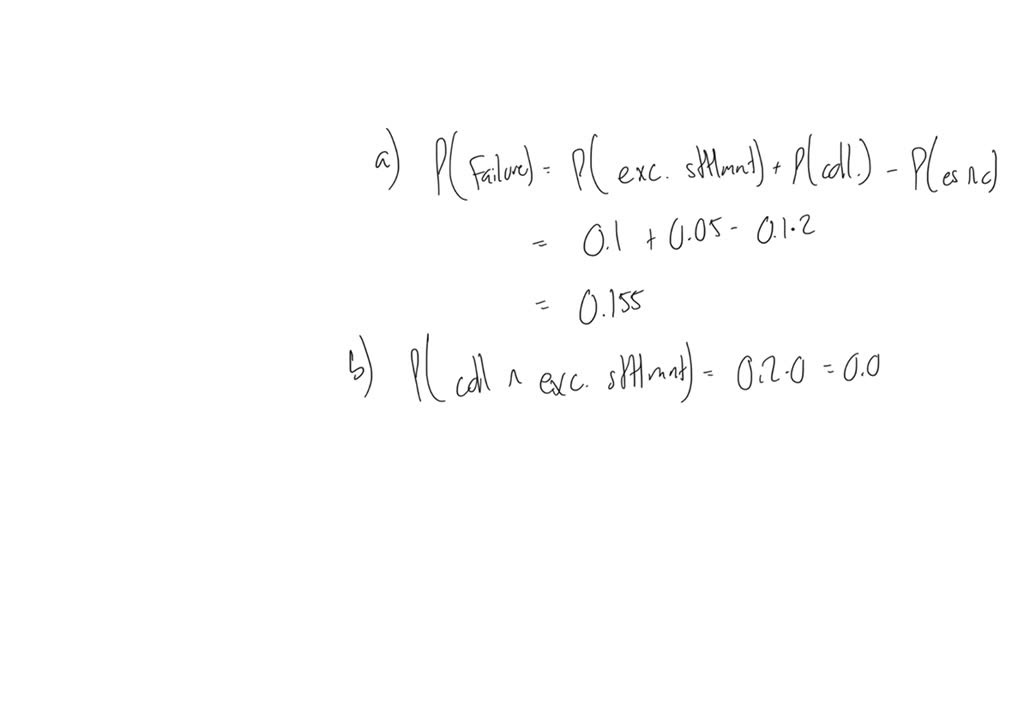 a) P(Failure) = P(exc. sttlmnt) + P(coll.) - P(es ∩ c)
= 0.1 + 0.05 - 0.1·2
= 0.155
b) P(coll ∩ exc. sttlmnt) = 0.2·0 = 0.0